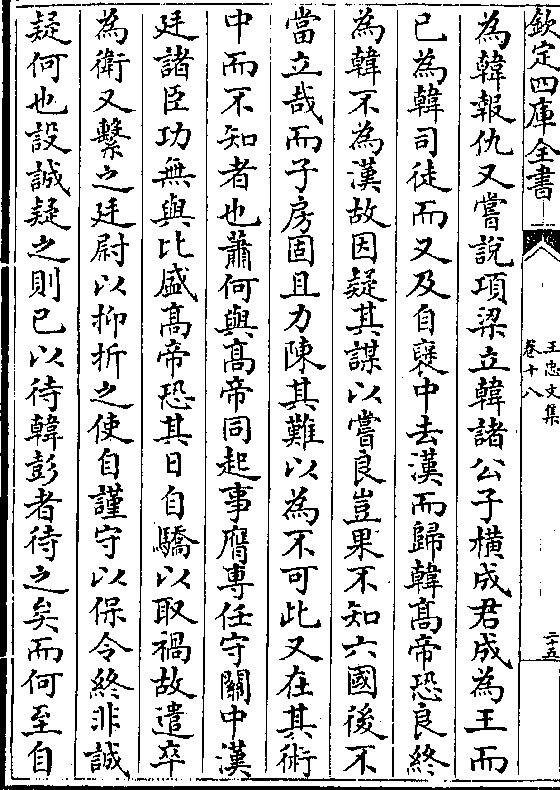 欽定四庫全書
王忠文集
卷十八
二十五
為韓報仇又嘗說項梁立韓諸公子橫成君成為王而
已為韓司徒而又及自襃中去漢而歸韓髙帝恐良終
為韓不為漢故因疑其謀以嘗良豈果不知六國後不
當立哉而子房固且力陳其難以為不可此又在其術
中而不知者也蕭何與髙帝同起事膺專任守關中漢
廷諸臣功無與比盛髙帝恐其日自驕以取禍故遣卒
為衛又繫之廷尉以抑折之使自謹守以保令終非誠
疑何也設誠疑之則已以待韓彭者待之矣而何至自